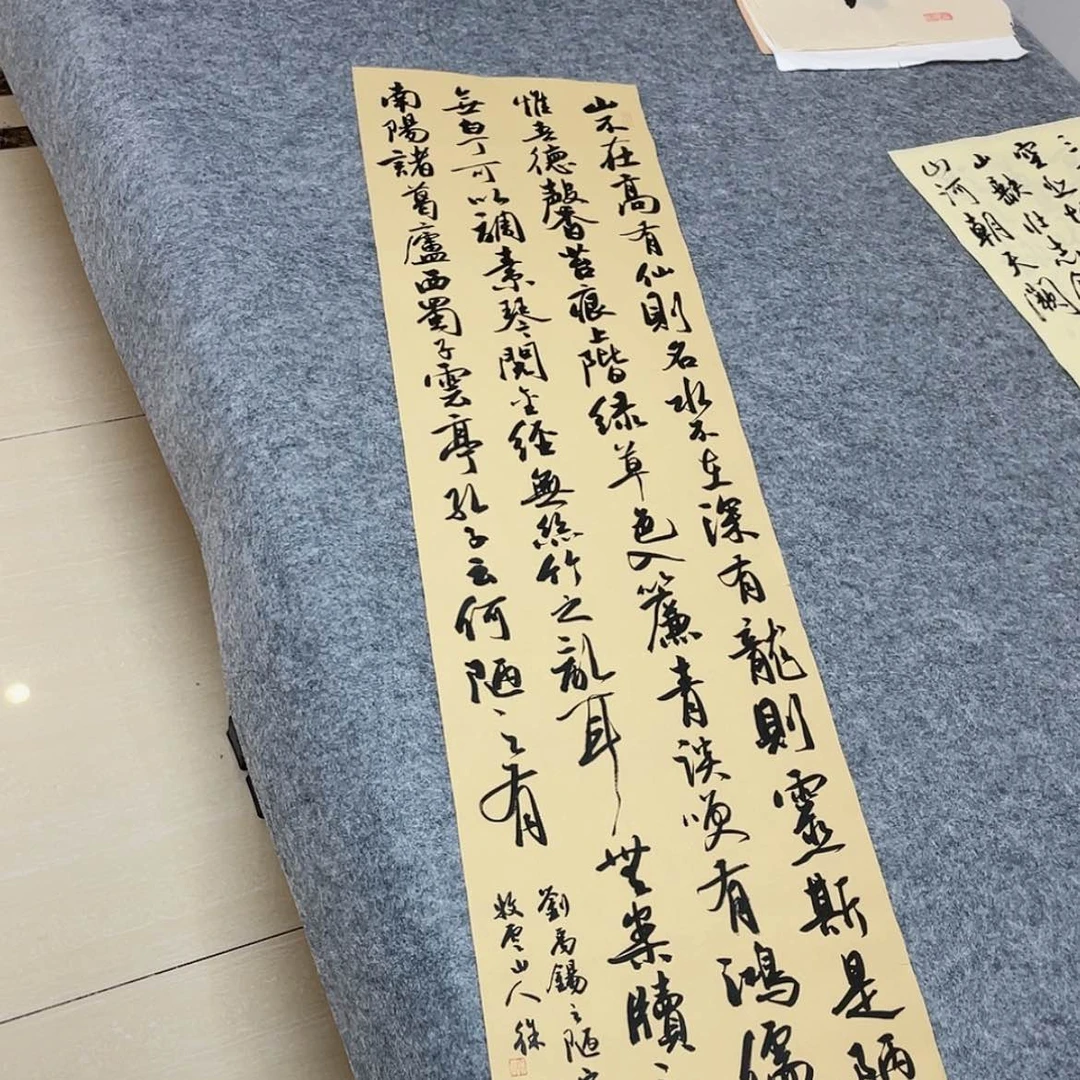 山不在高有仙則名水不在深有龍則靈斯是陋
惟吾德馨苔痕上階绿草色入簾青談唤有鴻儒
無白丁可以調素琴閱金經無絲竹之亂耳無案牘
南陽諸葛廬西蜀子雲亭孔子云何陋之有
劉禹錫之陋室
牧雲山人徐
山歌壮志
山河朝天阙